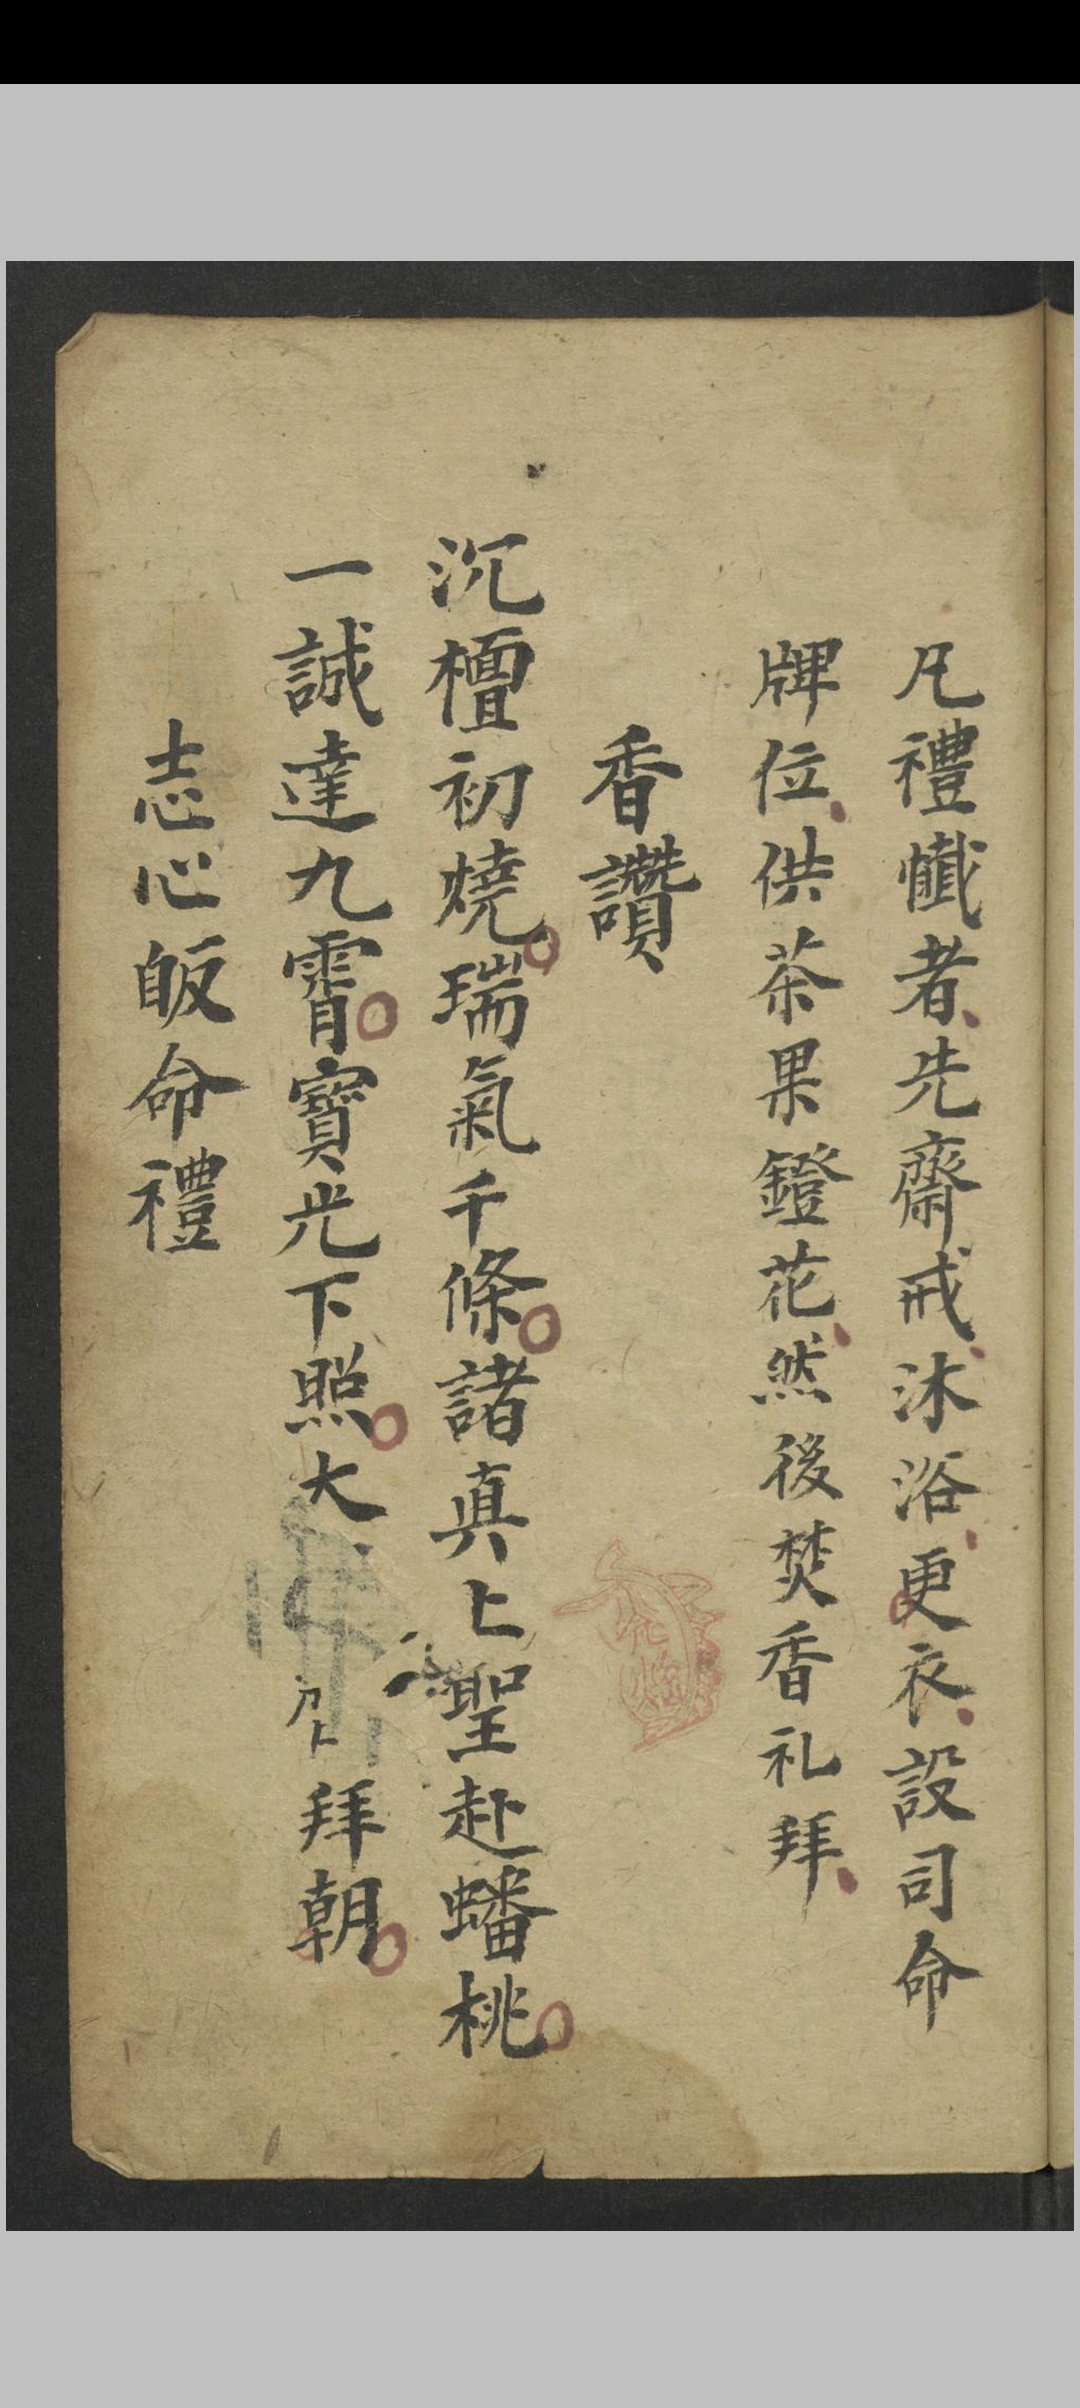 凡禮懺者先齋戒沐浴更衣設司命
牌位供茶果鐙花然後焚香礼拜
香讚
沉檀初燒瑞氣千條諸真上聖赴蟠桃
一誠達九霄寳光下照大拜朝
志心皈命禮